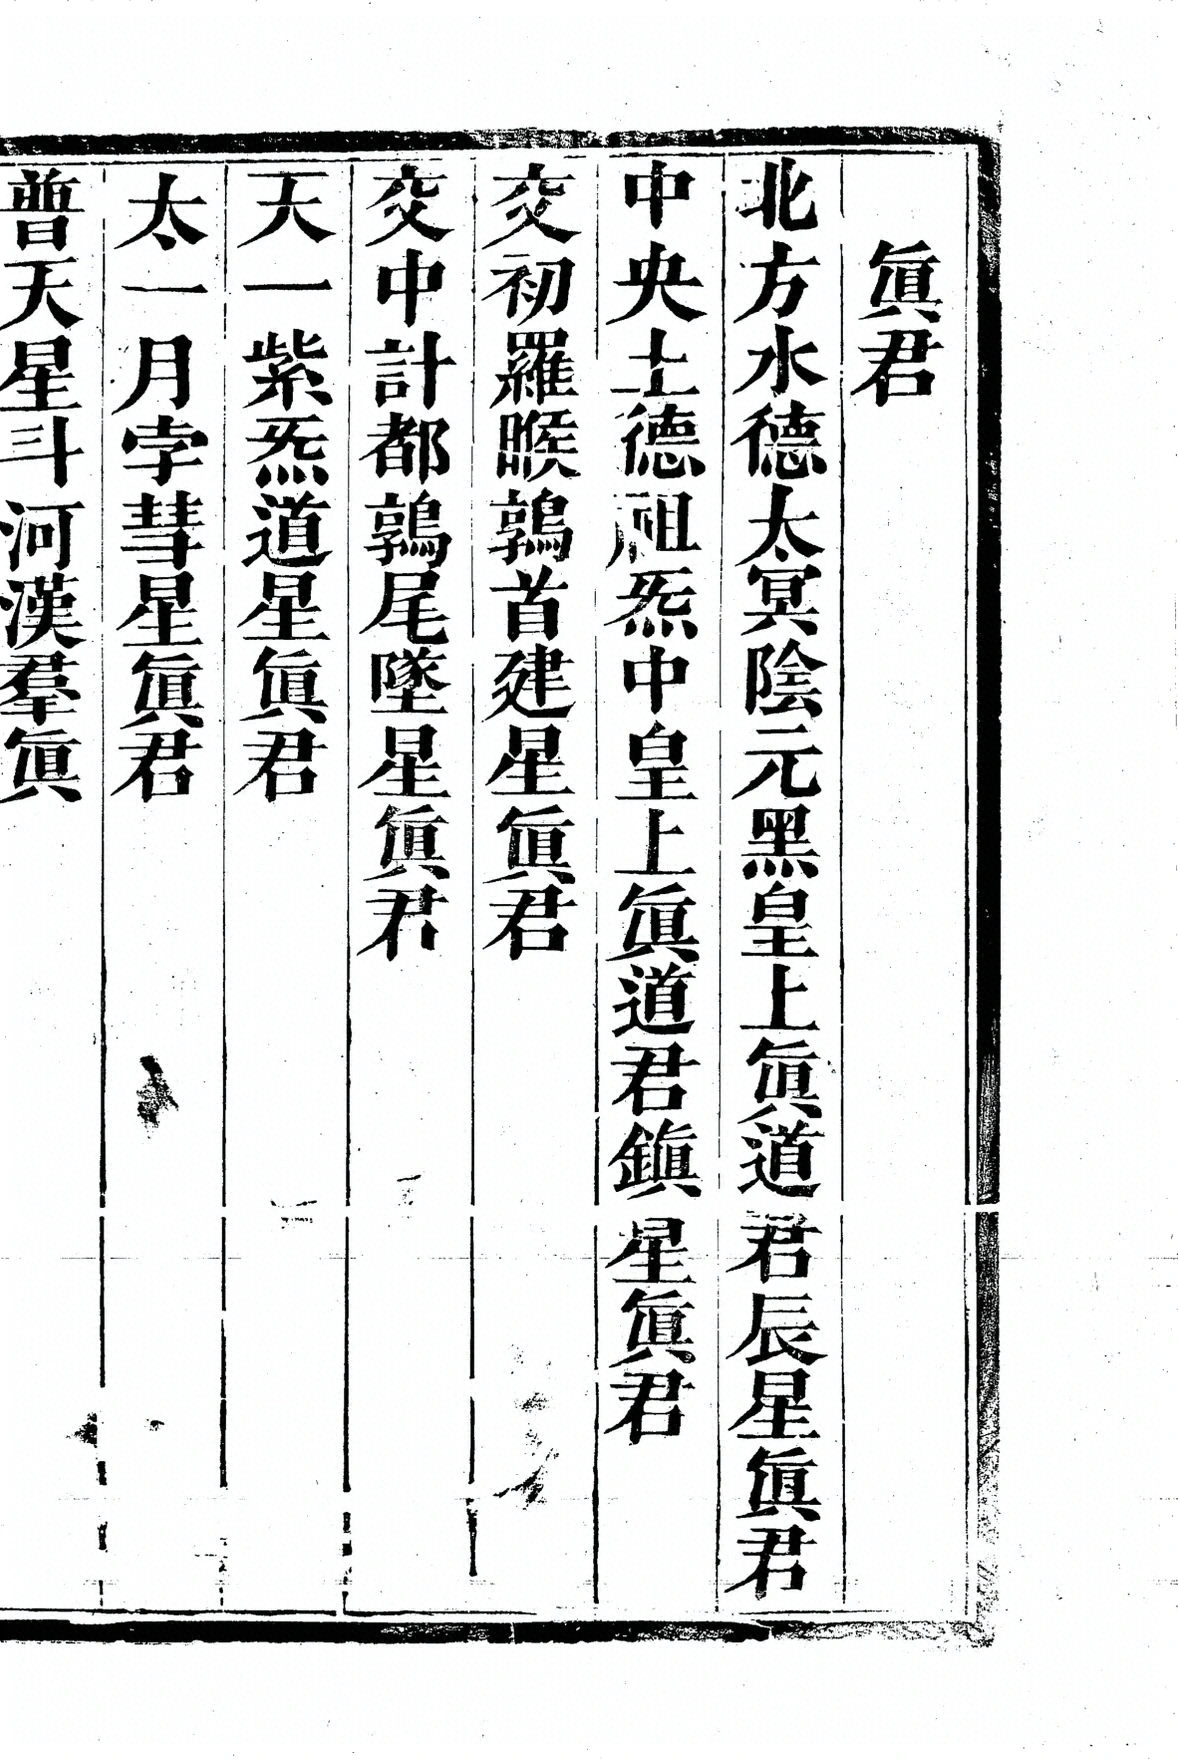 眞君
北方水德太冥陰元黑皇上眞道君辰星眞君
中央土德祖炁中皇上眞道君鎭星眞君
交初羅㬋鶉首建星眞君
交中計都鶉尾墜星眞君
天一紫炁道星眞君
太一月孛彗星眞君
普天星斗河漢羣眞